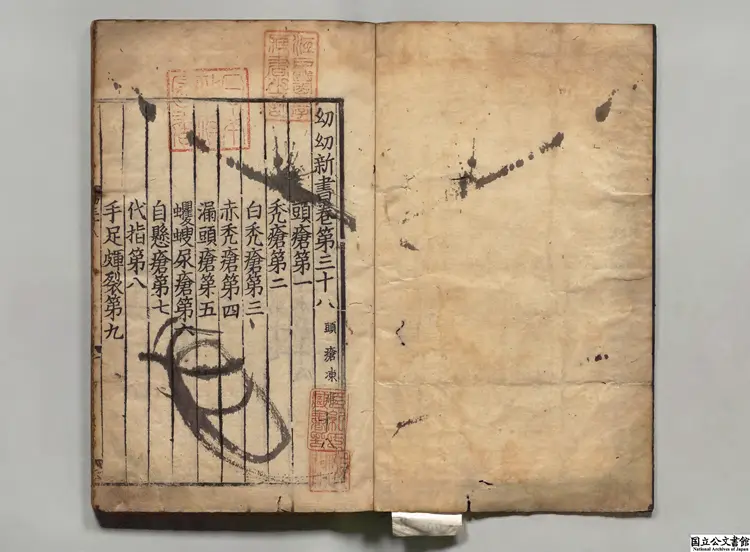 幼幼新書卷第三十八 頭瘡凍
頭瘡第一
禿瘡第二
白禿瘡第三
赤禿瘡第四
漏頭瘡第五
蠼螋尿瘡第六
自懸瘡第七
代指第八
手足皴裂第九
国立公文書館
National Archives of Japan